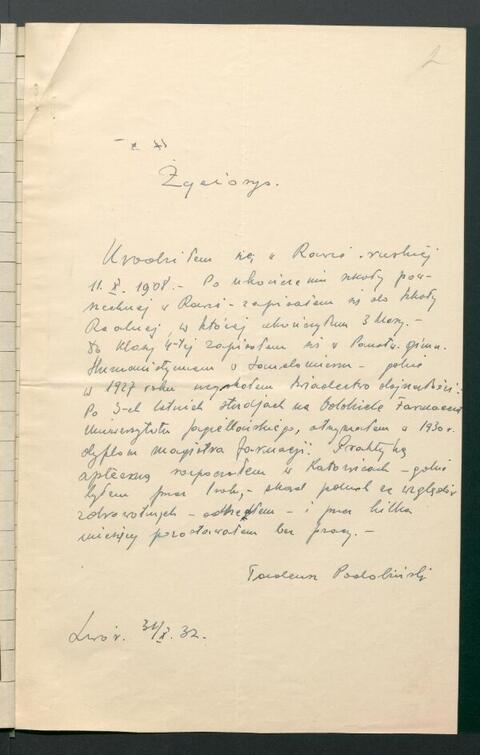 2
Życiorys.
Urodziłem się w Rawie-ruskiej
11. X. 1908. – Po ukończeniu szkoły pow-
szechnej w Rawie – zapisałem się do szkoły
Realnej, w której ukończyłem 3 klasy. –
do klasy 4-tej zapisałem się w Państw. gimn.
Humanistycznem w – gdzie
w 1927 roku uzyskałem świadectwo dojrzałości.
Po 3-ch letnich studjach na Oddziale Farmacji
Uniwersytetu Jagiellońskiego, otrzymałem w 1930 r.
dyplom magistra farmacji. Praktykę
apteczną rozpocząłem w Katowicach – gdzie
byłem przez – skąd ze względów
zdrowotnych – – i przez kilka
miesięcy pozostawałem bez pracy. –
Tadeusz Podobiński
Lwów. 31/X. 32.